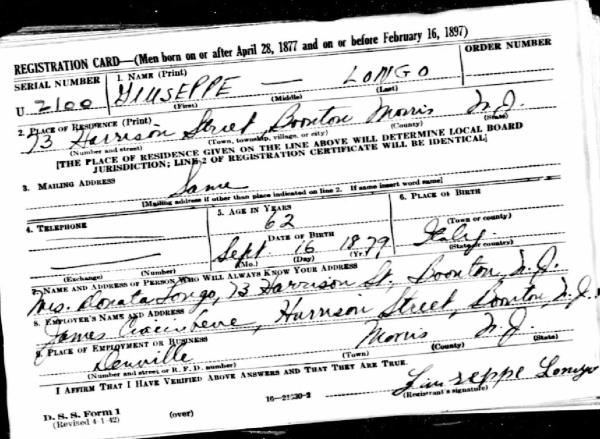 REGISTRATION CARD—(Men born on or after April 28, 1877 and on or before February 16, 1897)
SERIAL NUMBER 1. NAME (Print) ORDER NUMBER
U 2100 GIUSEPPE — LONGO
(First) (Middle) (Last)
2. PLACE OF RESIDENCE (Print)
73 Harrison Street Boonton Morris N.J.
(Number and street) (Town, township, village, or city) (County) (State)
[THE PLACE OF RESIDENCE GIVEN ON THE LINE ABOVE WILL DETERMINE LOCAL BOARD
JURISDICTION; LINE 2 OF REGISTRATION CERTIFICATE WILL BE IDENTICAL]
3. MAILING ADDRESS
Same
[Mailing address if other than place indicated on line 2. If same insert word same]
4. TELEPHONE 5. AGE IN YEARS 6. PLACE OF BIRTH
62
DATE OF BIRTH (Town or county)
Sept 16 1879 Italy.
(Exchange) (Number) (Mo.) (Day) (Yr.) (State or country)
7. NAME AND ADDRESS OF PERSON WHO WILL ALWAYS KNOW YOUR ADDRESS
Mrs. Donata Longo, 73 Harrison St, Boonton, N.J.
8. EMPLOYER'S NAME AND ADDRESS
James, Harrison Street, Boonton, N.J.
9. PLACE OF EMPLOYMENT OR BUSINESS
Denville Morris N.J.
(Number and street or R. F. D. number) (Town) (County) (State)
I AFFIRM THAT I HAVE VERIFIED ABOVE ANSWERS AND THAT THEY ARE TRUE.
Giuseppe Longo
D. S. S. Form 1 (over) 16—21630-2 (Registrant's signature)
(Revised 4-1-42)